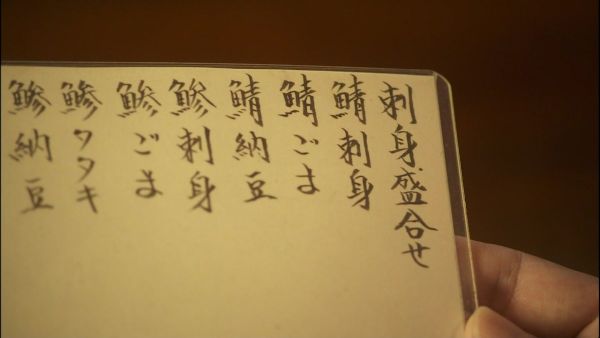 刺身盛合せ
鯖刺身
鯖ごま
鯖納豆
鯵刺身
鯵ごま
鯵タタキ
鯵納豆